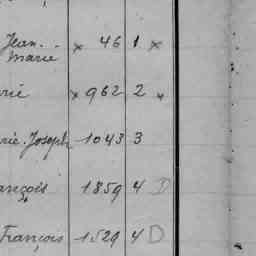 Jean. . x 46 1 x
Marie
rie x 962 2 x
rie. Joseph 1043 3
ançois 1859 4 D
François 1529 4 D